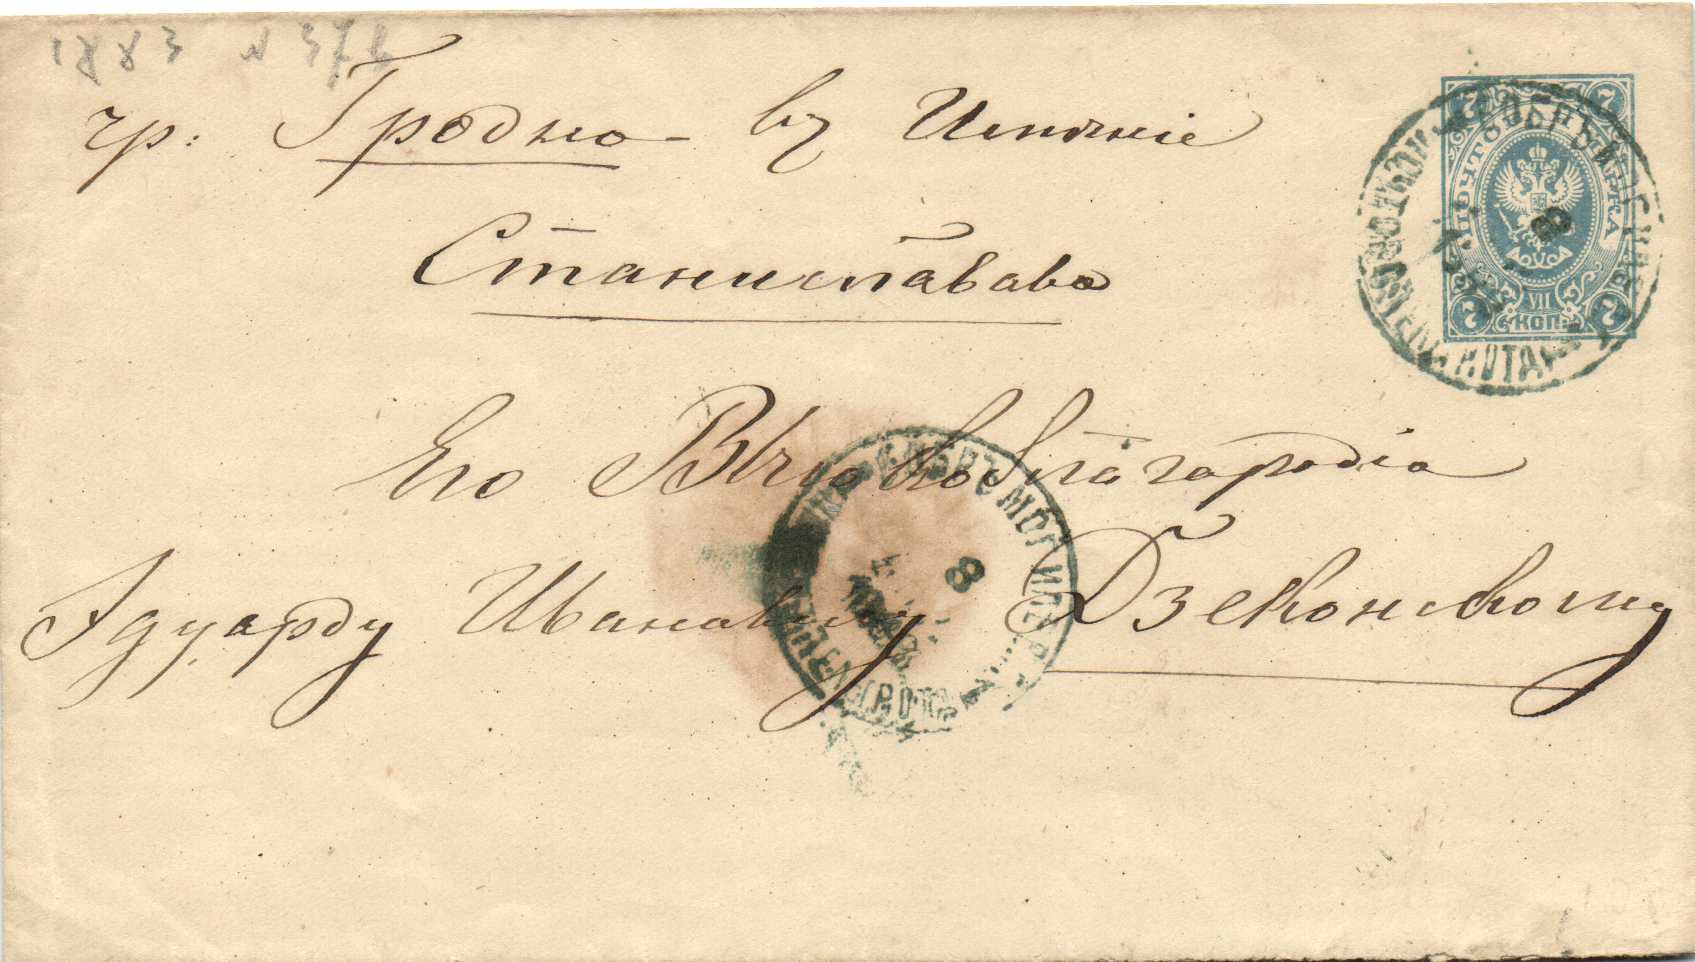 1883 N 37 в
гр: Гродно - въ Имѣніе
Станиславово
Его Высокоблагородію
Эдуарду Ивановичу Дзеконскому
ПОЧТОВ МАРКА
7 7
7 7
VII
КОП.
8
8
МОГИЛЕВ